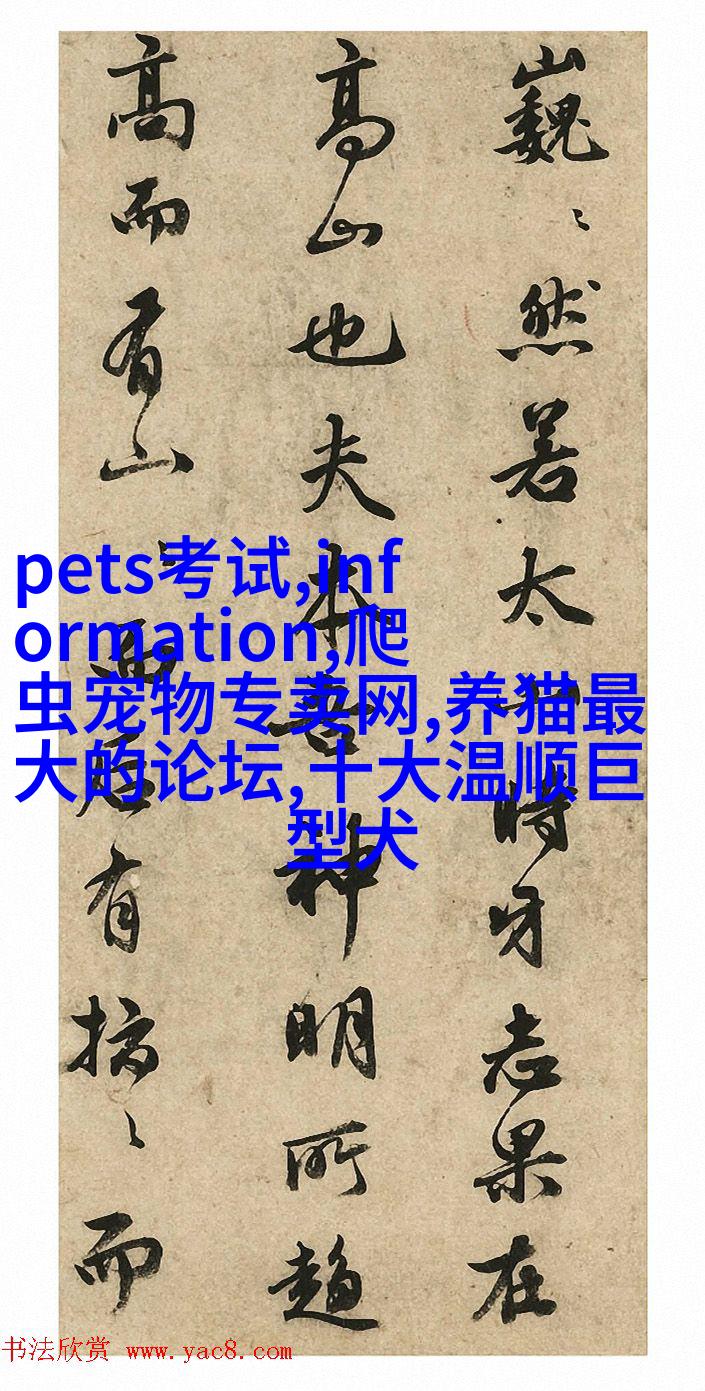 巍〻然若太時牙志果在
高山也夫本神明所趨
高而有山〻而后有〻而
pets考试,inf
ormation,爬
虫宠物专卖网,养猫最
大的论坛,十大温顺巨
型犬
书法欣赏 www.yac8.com